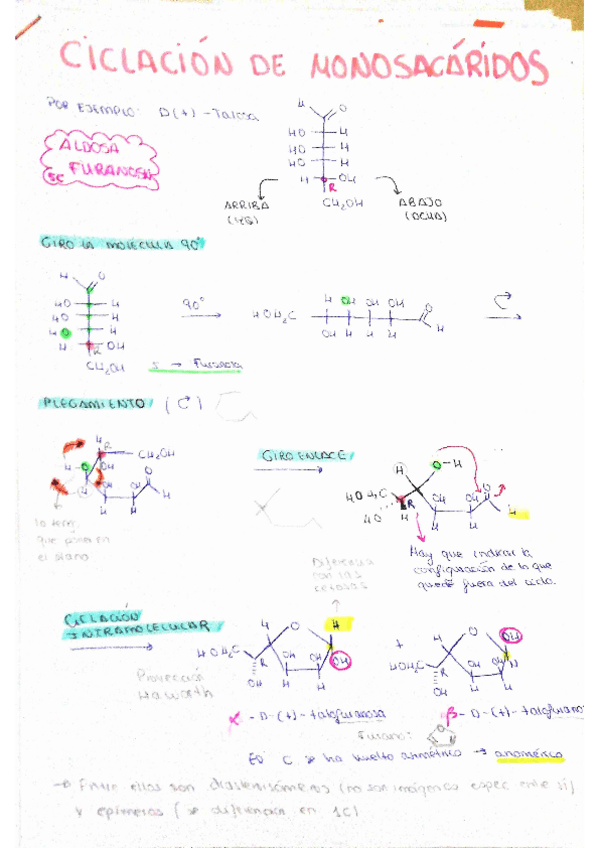 CICLACIÓN DE MONOSACÁRIDOS
POR EJEMPLO: D(+) - Talosa
ALDOSA
FURANOSA
5C
H O
HO H
HO H
HO H
H OH
R
CH₂OH
ARRIBA
ABAJO
GIRO LA MOLÉCULA 90°
H O
HO H
HO H
HO H
H OH
R
CH₂OH
90°
HOH₂C
H OH OH OH
OH H H H
O
H
5 → Furanosa
PLEGAMIENTO
GIRO ENLACE
H
R
CH₂OH
H O
OH
OH OH
H H
O
H
lo tengo
que poner en
el plano
H O-H
HOH₂C
HO
R
H
OH OH
H H
O
H
Hay que indicar la
configuración de lo que
quede fuera del ciclo.
Diferencia
con las
cetosas
CICLACIÓN
INTRAMOLECULAR
Proyección
Haworth
H O H
HOH₂C
R
OH
OH OH
H H
OH
+
H O OH
HOH₂C
R
OH
OH OH
H H
H
α - D-(+)-talofuranosa
β - D-(+)-talofurano
Furano:
C se ha vuelto asimétrico → anomérico
→ Entre ellas son diasteroisómeros (no son imágenes espec entre sí)
y epímeros (se diferencian en 1C)